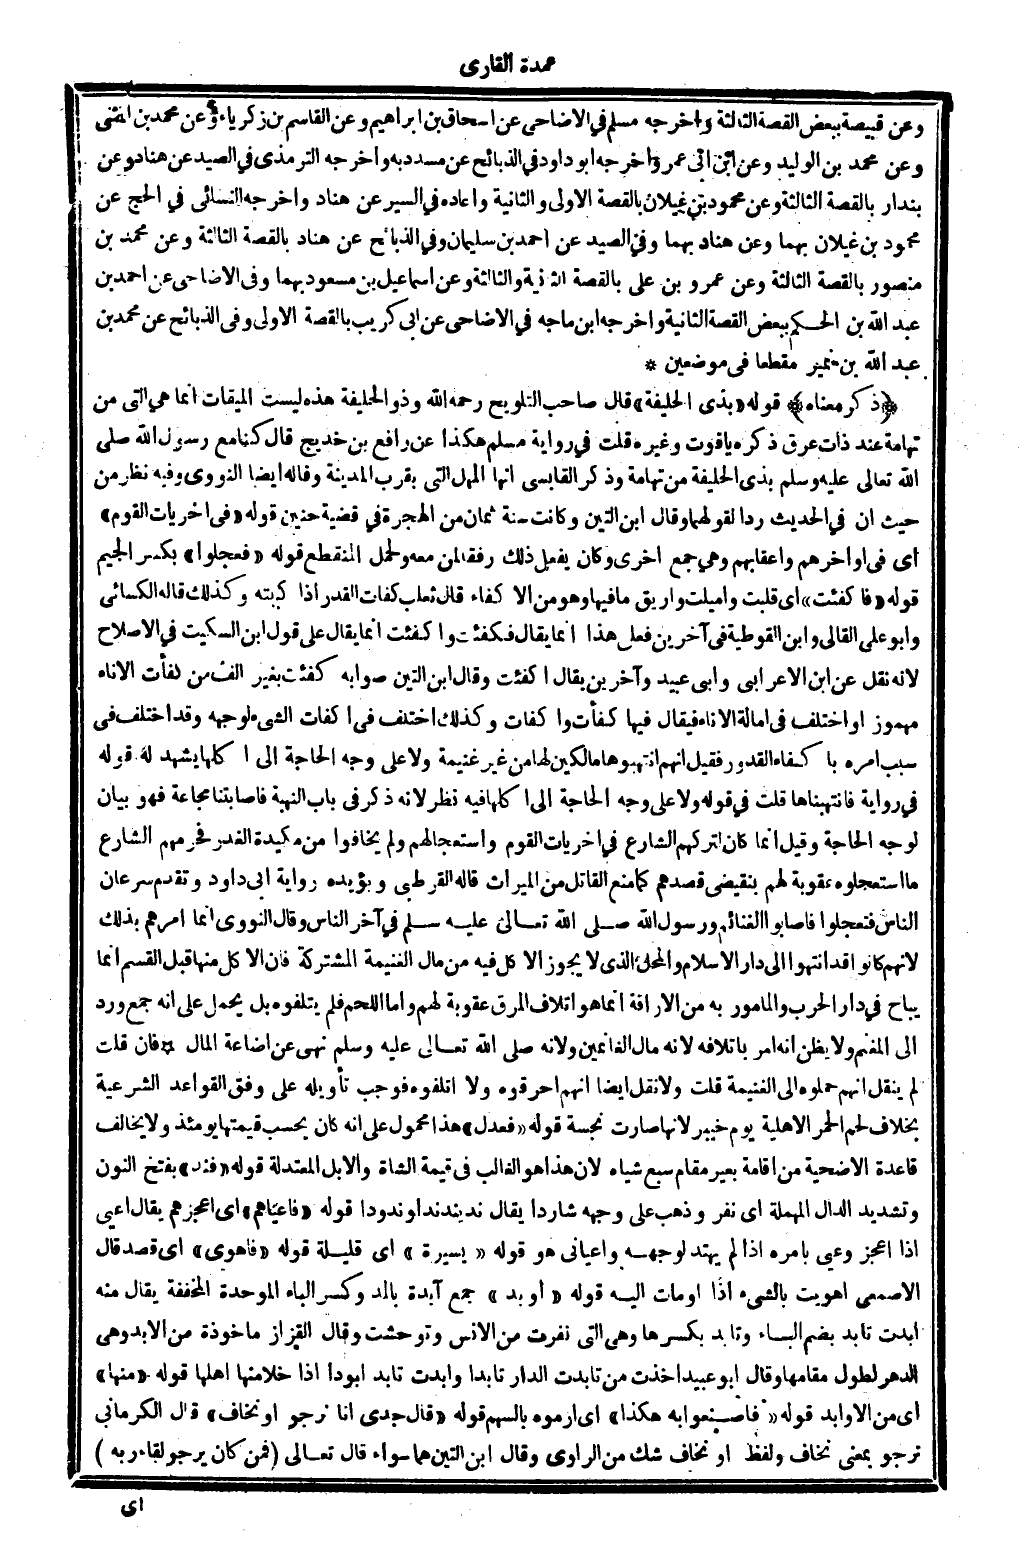 عمدة القارى
وعن قبيصة ببعض القصة الثالثة واخرجه مسلم في الاضاحى عن اسحاق بن ابراهيم وعن القاسم بن زكرياء وعن محمد بن المثنى
وعن محمد بن الوليد وعن ابن ابى عمر واخرجه ابو داود في الذبائح عن مسدد به واخرجه الترمذى في الصيد عن هناد وعن
بندار بالقصة الثالثة وعن محمود بن غيلان بالقصة الاولى والثانية واعاده في السير عن هناد واخرجه النسائى في الحج عن
محمود بن غيلان بهما وعن هناد بهما وفي الصيد عن احمد بن سليمان وفي الذبائح عن هناد بالقصة الثالثة وعن محمد بن
منصور بالقصة الثالثة وعن عمرو بن على بالقصة الثانية والثالثة وعن اسماعيل بن مسعود بهما وفى الاضاحى عن احمد بن
عبد الله بن الحكم ببعض القصة الثانية واخرجه ابن ماجه في الاضاحى عن ابى كريب بالقصة الاولى وفى الذبائح عن محمد بن
عبد الله بن نمير مقطعا فى موضعين *
﴿ ذكر معناه ﴾ قوله «بذى الحليفة» قال صاحب التلويح رحمه الله وذو الحليفة هذه ليست الميقات انما هي التى من
تهامة عند ذات عرق ذكره ياقوت وغيره قلت في رواية مسلم هكذا عن رافع بن خديج قال كنا مع رسول الله صلى
الله تعالى عليه وسلم بذى الحليفة من تهامة وذكر القابسى انها المهل التى بقرب المدينة وقاله ايضا النووى وفيه نظر من
حيث ان في الحديث ردا لقولهما وقال ابن التين وكانت سنة ثمان من الهجرة في قضية حنين قوله «فى اخريات القوم»
اى فى اواخرهم واعقابهم وهي جمع اخرى وكان يفعل ذلك رفقا لمن معه ولحمل المنقطع قوله «فعجلوا» بكسر الجيم
قوله «فاكفئت» اى قلبت واميلت واريق مافيها وهو من الاكفاء قال ثعلب كفات القدر اذا كببته وكذلك قاله الكسائى
وابو على القالى وابن القوطية فى آخرين فعل هذا انما يقال فكفئت واكفئت انما يقال على قول ابن السكيت في الاصلاح
لانه نقل عن ابن الاعرابى وابى عبيد وآخرين يقال اكفئت وقال ابن التين صوابه كفئت بغير الف من كفأت الاناء
مهموز او اختلف فى امالة الاناء فيقال فيها كفأت واكفات وكذلك اختلف فى اكفات الشىء لوجهه وقد اختلف فى
سبب امره باكفاء القدور فقيل انهم انتهبوها مالكين لها من غير غنيمة ولا على وجه الحاجة الى اكلها يشهد له قوله
في رواية فانتهبناها قلت في قوله ولا على وجه الحاجة الى اكلها فيه نظر لانه ذكر فى باب النهبة فاصابتنا مجاعة فهو بيان
لوجه الحاجة وقيل انما كان لتركهم الشارع في اخريات القوم واستعجالهم ولم يخافوا من مكيدة الغدر فحرمهم الشارع
ما استعجلوه عقوبة لهم بنقيض قصدهم كما منع القاتل من الميراث قاله القرطبى ويؤيده رواية ابى داود وتقدم سرعان
الناس فتعجلوا فاصابوا الغنائم ورسول الله صلى الله تعالى عليه سلم في آخر الناس وقال النووى انما امرهم بذلك
لانهم كانوا قد انتهوا الى دار الاسلام والمحل الذى لا يجوز الاكل فيه من مال الغنيمة المشتركة فان الاكل منها قبل القسم انما
يباح في دار الحرب والمامور به من الاراقة انما هو اتلاف المرق عقوبة لهم واما اللحم فلم يتلفوه بل يحمل على انه جمع ورد
الى المغنم ولا يظن انه امر باتلافه لانه مال الغانمين ولانه صلى الله تعالى عليه وسلم نهى عن اضاعة المال * فان قلت
لم ينقل انهم حملوه الى الغنيمة قلت ولا نقل ايضا انهم احرقوه ولا اتلفوه فوجب تأويله على وفق القواعد الشرعية
بخلاف لحم الحمر الاهلية يوم خيبر لانها صارت نجسة قوله «فعدل» هذا محمول على انه كان بحسب قيمتها يومئذ ولا يخالف
قاعدة الاضحية من اقامة بعير مقام سبع شياه لان هذا هو الغالب فى قيمة الشاة والابل المعتدلة قوله «فند» بفتح النون
وتشديد الدال المهملة اى نفر وذهب على وجهه شاردا يقال ند يند ندا وندودا قوله «فاعياهم» اى اعجزهم يقال اعيى
اذا اعجز وعي بامره اذا لم يهتد لوجهه واعيانى هو قوله « يسيرة » اى قليلة قوله «فاهوى» اى قصد قال
الاصمعى اهويت بالشىء اذا اومات اليه قوله « اوبد » جمع آبدة بالمد وكسر الباء الموحدة المخففة يقال منه
ابدت تابد بضم الباء وتابد بكسرها وهى التى نفرت من الانس وتوحشت وقال القزاز ماخوذة من الابد وهى
الدهر لطول مقامها وقال ابو عبيد اخذت من تابدت الدار تابدا وابدت تابد ابودا اذا خلا منها اهلها قوله «منها»
اى من الاوابد قوله « فاصنعوا به هكذا» اى ارموه بالسهم قوله «قال جدى انا نرجو او نخاف» قال الكرمانى
نرجو بمعنى نخاف ولفظ او نخاف شك من الراوى وقال ابن التين هما سواء قال تعالى (فمن كان يرجو لقاء ربه )
اى